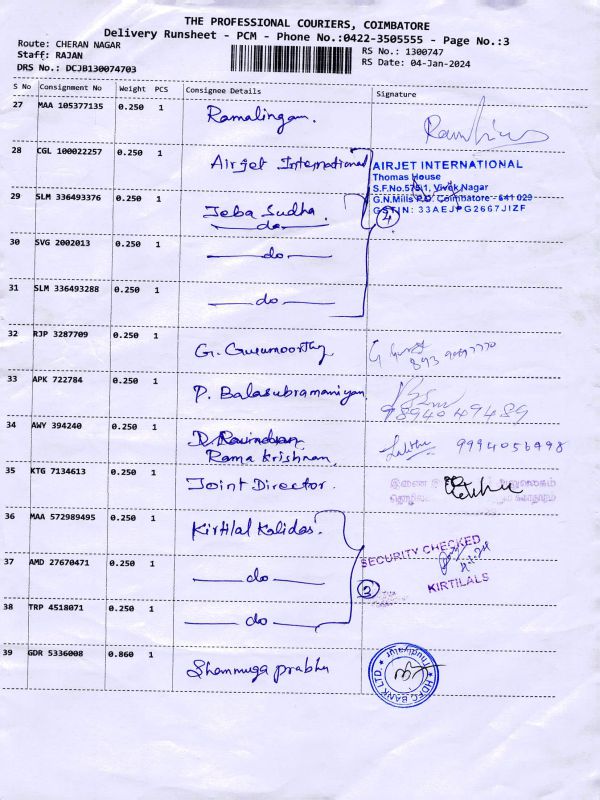 THE PROFESSIONAL COURIERS, COIMBATORE
Delivery Runsheet - PCM - Phone No.:0422-3505555 - Page No.:3
Route: CHERAN NAGAR
RS No.: 1300747
Staff: RAJAN
RS Date: 04-Jan-2024
DRS No.: DCJB130074703
S No Consignment No Weight PCS Consignee Details Signature
27 MAA 105377135 0.250 1 Ramalingam.
28 CGL 100022257 0.250 1 Airjet International
AIRJET INTERNATIONAL
Thomas House
S.F.No.578/1, Vivek Nagar
G.N.Mills P.O. Coimbatore - 641 029
GSTIN: 33AEJPG2667J1ZF
4
29 SLM 336493376 0.250 1 Jeba Sudha.
do
30 SVG 2002013 0.250 1 do
31 SLM 336493288 0.250 1 do
32 RJP 3287709 0.250 1 G. Gurumoorthy
33 APK 722784 0.250 1 P. Balasubramaniyan
9894049489
34 AWY 394240 0.250 1 Rama Krishnan
Lalitha 9994056498
35 KTG 7134613 0.250 1 Joint Director.
36 MAA 572989495 0.250 1 Kirtilal Kalidas.
SECURITY CHECKED
KIRTILALS
3
37 AMD 27670471 0.250 1 do
38 TRP 4518071 0.250 1 do
39 GDR 5336008 0.860 1 Shanmuga prabhu
HDFC BANK LTD. Thudiyalur